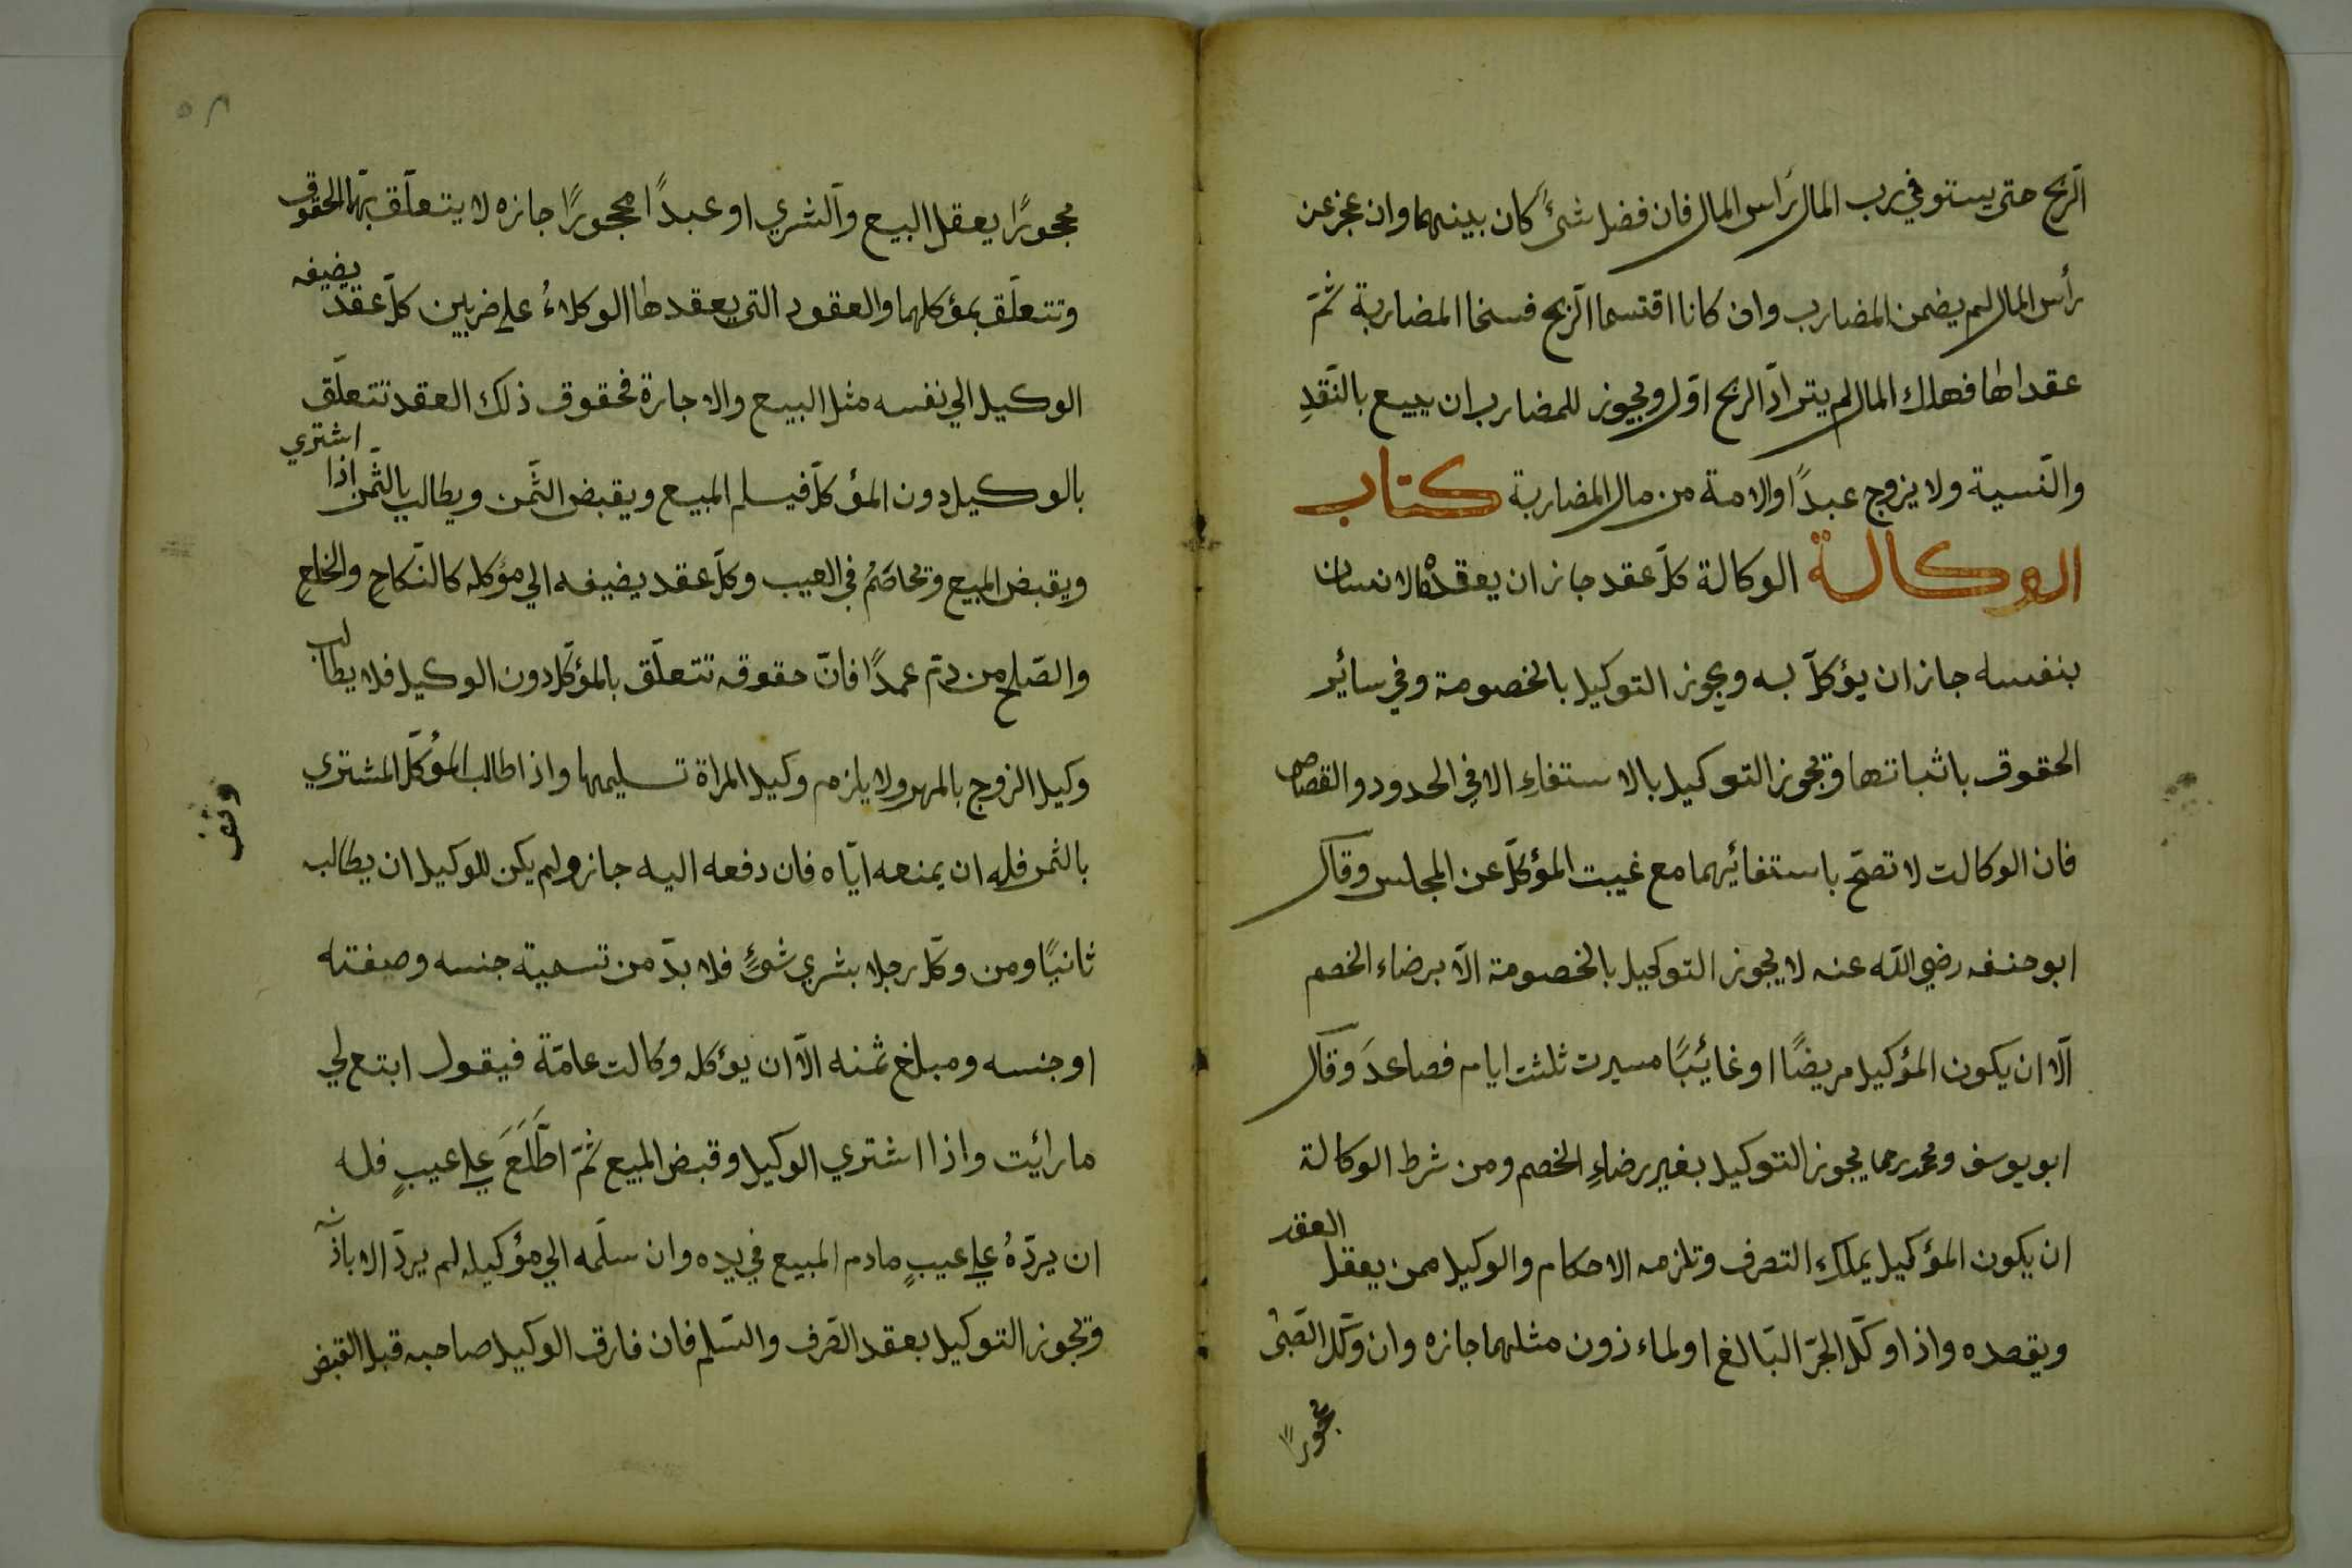 الرّبح حتى يستوفي رب المال رَاس المال فان فضل شئً كان بينهما وان عجز عن
رأس المال لم يضمن المضارب وان كانا اقتسما الرّبح فسخا المضاربة ثمّ
عقداها فهلك المال لم يترادّ الربح اوّل ويجوز للمضارب ان يبيع بالنّقدِ
والنّسية ولا يزوج عبدًا والامة من مال المضاربة كتاب
الوكالة الوكالة كلّ عقد جاز ان يعقدهُ الانسان
بنفسه جاز ان يؤكلّ به ويجوز التوكيل بالخصومة وفي سائر
الحقوق باثباتها وَيجوز التوكيل بالاستفاءِ الا في الحدود والقصاص
فان الوكالت لا تصحّ باستفائهما مع غيبت المؤكلّ عن المجلس وقال
ابو حنفه رضي الله عنه لا يجوز التوكيل بالخصومة الّا برضاء الخصم
الّا ان يكون المؤكيل مريضًا او غائبًا مسيرت ثلثت ايام فصاعدَ وَقال
ابو يوسف ومحمد رحما يجوز التوكيل بغير رضاءِ الخصم ومن شرط الوكالة
ان يكون المؤكيل يملكِ التصرف وتلزمه الاحكام والوكيل ممن يعقل العقد
ويقصده واذا وكّل الحرّ البَالغ اولماءذون مثلهما جازه وان وَكّل الصّبىّ
محجورًا
محجورًا يعقل البيع وآلشري او عبدًا محجورًا جازه لا يتعلّق بهّما الحقوق
وتتعلّق بمؤكلهما والعقود التى يعقدها الوكلاءُ على ضربين كلّ عقد يضيفه
الوكيل الي نفسه مثل البيع والاجارة فحقوق ذلك العقد تتعلّق
بالوكيل دون المؤكلّ فيسلم المبيع ويقبض الثّمن ويطالب بالثّمن اذا اشتري
ويقبض المبيع وَيخاصَمُ في العيب وكلّ عقد يضيفه الي مؤكله كالنّكاحِ والخلعِ
والصّلح من دمّ عمدًا فانّ حقوقه تتعلّق بالمؤكّل دون الوكيل فلا يطالب
وكيل الزوج بالمهر ولا يلزم وكيل المراة تسليمها واذا طالب المؤكّل المشتري
بالثمن فله ان يمنعه ايّاه فان دفعه اليه جاز ولم يكن للوكيل ان يطالب
ثانيًا ومن وكلّ رجلا بشري شئٍ فلا بدّ من تسمية جنسه وصفته
او جنسه ومبلغ ثمنه الّا ان يؤكله وكالت عامّة فيقول ابتع لي
ما رائيت واذا اشتري الوكيل وقبض المبيع ثمّ اطّلَعَ علي عيبٍ فله
ان يردّهُ علي عيبٍ مادم المبيع في يده وان سلّمه الي مؤكيله لم يردّ الا باذنه
وَيجوز التوكيل بعقد الصّرف والسّلم فان فارق الوكيل صاحبه قبل القبض